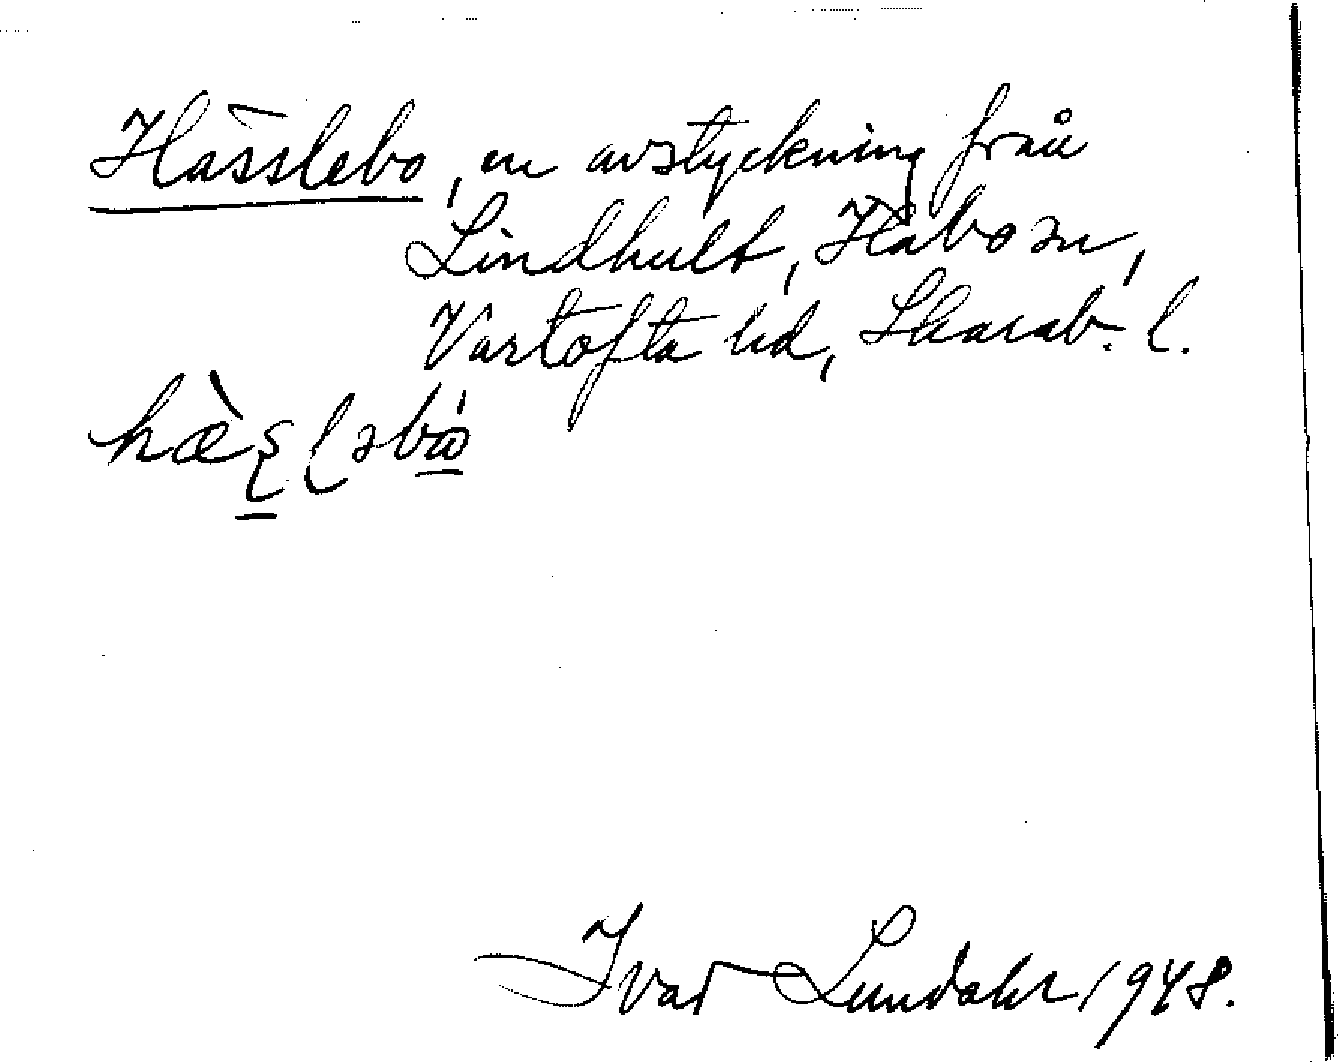 Hässlebo, en avstyckning från
Lindhult, Habo sn,
Vartofta hd, Skarab. l.
Ivar Lundahl 1948.